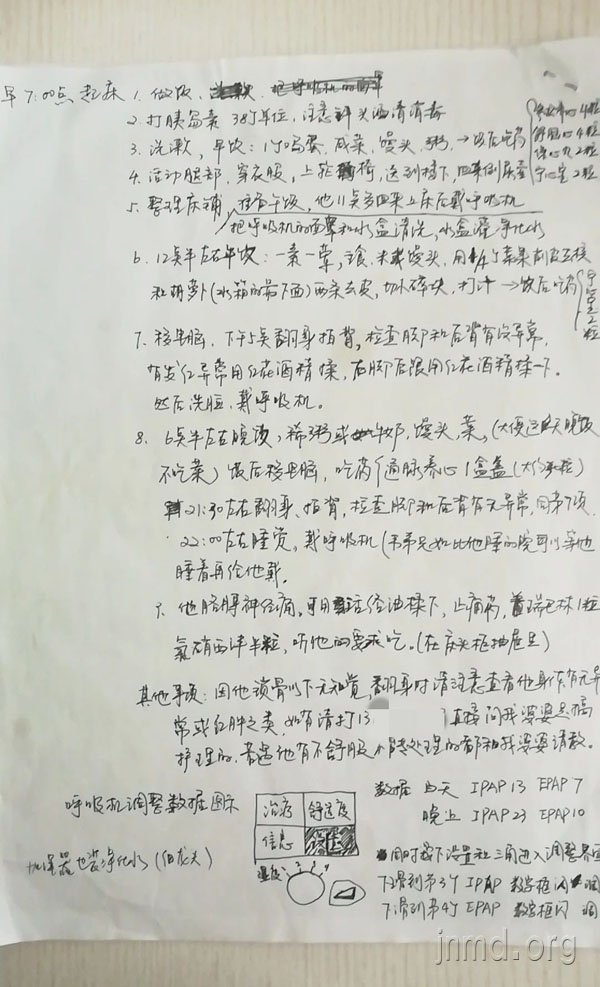 早7:00点 起床 1. 做饭
2. 打胰岛素 38个单位，注意针头酒精消毒
3. 洗漱，早饭：1个鸡蛋，咸菜，馒头，粥，→饭后吃药
4粒
4粒
2粒
4. 活动腿部，穿衣服，上轮椅，送到楼下，回来倒尿壶
5. 整理床铺，准备午饭，他11点多回来上床后戴呼吸机
把呼吸机的面罩和水盒清洗，水盒灌净化水
6. 12点半左右午饭：一素一荤，主食，米或馒头，用1/4个苹果削皮去核
和胡萝卜(水箱的最下面)两条去皮，切小碎块，打汁→饭后吃药
宁心宝2粒
7. 接电脑，下午5点翻身拍背，检查脚和后背有没异常，
有发红异常用红花酒精揉，右脚后跟用红花酒精揉一下。
然后洗脸，戴呼吸机。
8. 6点半左右晚饭，稀粥或牛奶，馒头，菜，(大便这天晚饭
不吃菜) 饭后接电脑，吃药 通脉养心1盒盖
21:30左右翻身、拍背，检查脚和后背有无异常，同第7项
22:00左右睡觉，戴呼吸机
睡着再给他戴。
9. 他胳膊神经痛，可用活络油揉下，止痛药，1粒
氯硝西泮半粒，听他的要求吃。(在床头柜抽屉里)
其他事项：因他锁骨以下无知觉，翻身时请注意查看他身体有无异
常或红肿之类，如有请打13 直接问我婆婆怎样
护理的，若遇他有不舒服不清楚处理的都和我婆婆请教。
呼吸机调整数据图示
治疗 舒适度
信息
湿度
加湿器也装净化水
数据 白天 IPAP 13 EPAP 7
晚上 IPAP 23 EPAP 10
同时按下设置和三角进入调整界面
下滑到第3个 IPAP 数字框闪 调
下滑到第4个 EPAP 数字框闪 调
jnmd.org